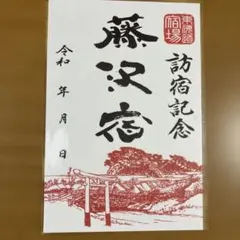 東海道
宿場
訪宿記念
藤沢宿
令和 年 月 日